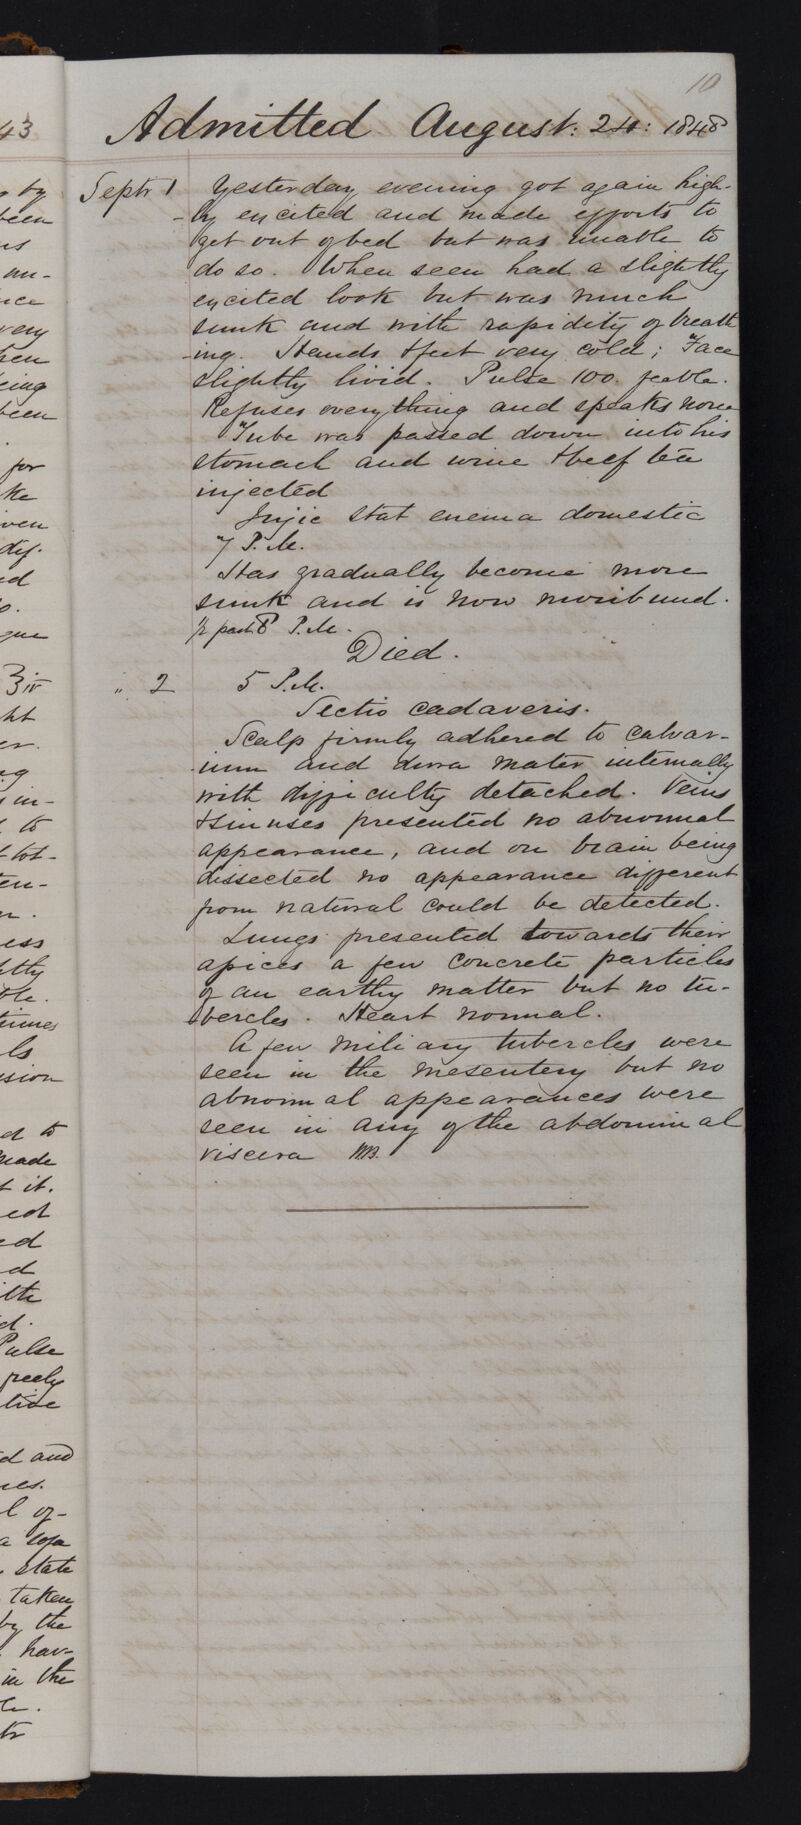 10
Admitted August: 24: 1848
Septr 1 Yesterday evening got again high-
-ly excited and made efforts to
get out of bed but was unable to
do so. When seen had a slightly
excited look but was much
sunk and with rapidity of breath
-ing. Hands & feet very cold; Face
slightly livid. Pulse 100. feeble.
Refuses everything and speaks none
Tube was passed down into his
stomach and wine & beef tea
injected
Injic stat enema domestic
7 P.M.
Has gradually become more
sunk and is now moribund.
½ past 8 P.M.
Died.
" 2 5 P.M.
Sectio cadaveris.
Scalp firmly adhered to calvar-
-ium and dura mater internally
with difficulty detached. Veins
& sinuses presented no abnormal
appearance, and on brain being
dissected no appearance different
from natural could be detected.
Lungs presented towards their
apices a few concrete particles
of an earthy matter but no tu-
bercles. Heart normal.
A few miliary tubercles were
seen in the mesentery but no
abnormal appearances were
seen in any of the abdominal
viscera
43
by
been
very
been
for
ht
to
ess
times
sion
made
it.
Pulse
freely
and
a sofa
state
taken
by the
hav-
in the